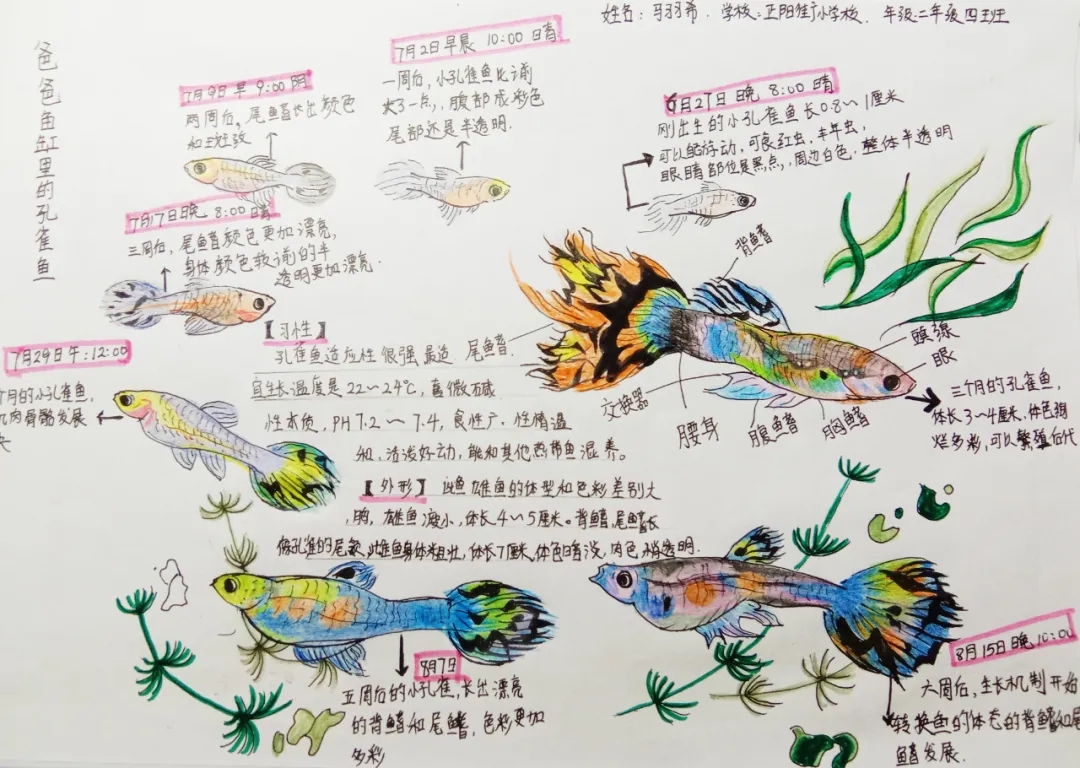 姓名: 马羽希. 学校: 正阳街小学校. 年级: 二年级四班
爸爸鱼缸里的孔雀鱼
6月27日 晚 8:00 晴
刚出生的小孔雀鱼长0.8~1厘米
可以能游动,可食红虫,丰年虫,
眼睛部位是黑点,周边白色.整体半透明
7月2日早晨 10:00 晴
一周后,小孔雀鱼比前
大了一点,腹部成彩色
尾部还是半透明.
7月9日早 9:00 阴
两周后,尾鳍长出颜色
和斑纹
7月17日晚 8:00 晴
三周后,尾鳍颜色更加漂亮,
身体颜色较前的半
透明更加漂亮.
7月29日午:12:00
个月的小孔雀鱼,
肌肉骨骼发展
【习性】
孔雀鱼适应性很强最适
宜生长温度是22~24℃,喜微碱
性水质,PH 7.2~7.4,食性广.性情温
和,活泼好动,能和其他热带鱼混养.
【外形】 此鱼雄鱼的体型和色彩差别大
,雄鱼瘦小,体长4~5厘米。背鳍,尾鳍长
像孔雀的尾,雌鱼身体粗壮,体长7厘米,体色暗淡,肉色,稍透明.
背鳍
尾鳍
头
眼
交换器
腰身
腹鳍
胸鳍
三个月的孔雀鱼,
体长3~4厘米,体色斑
烂多彩,可以繁殖后代
8月7日
五周后的小孔雀,长出漂亮
的背鳍和尾鳍,色彩更加
多彩
8月15日晚10:00
六周后,生长机制开始
转换鱼的体态的背鳍和尾
鳍发展.